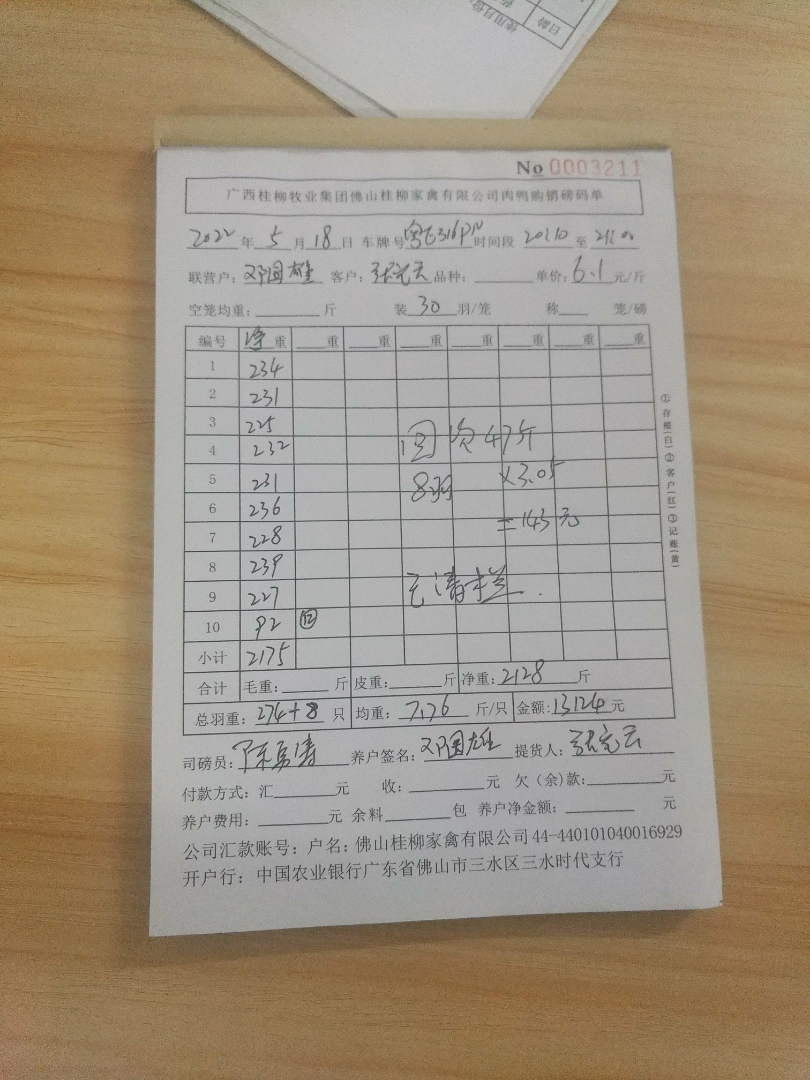 日龄
使用月份
No 0003211
广西桂柳牧业集团佛山桂柳家禽有限公司肉鸭购销磅码单
2022年5月18日 车牌号粤E316PN时间段 20:10至21:00
联营户: 邓国雄 客户: 张完云 品种: 单价: 6.1元/斤
空笼均重: 斤 装30羽/笼 称 笼/磅
编号 净重 重 重 重 重 重 重 重
1 234
2 231
3 225
4 232
5 231
6 236
7 228
8 239
9 227
10 92 ⑫
小计 2175
次47斤
8羽 ×3.05
=143元
已清栏.
合计 毛重: 斤 皮重: 斤 净重: 2128斤
总羽重: 274+8只 均重: 7.76斤/只 金额: 13124元
司磅员: 陈勇涛 养户签名: 邓国雄 提货人: 张完云
付款方式: 汇 元 收: 元 欠(余)款: 元
养户费用: 元 余料 包 养户净金额: 元
公司汇款账号: 户名: 佛山桂柳家禽有限公司 44-440101040016929
开户行: 中国农业银行广东省佛山市三水区三水时代支行
①存根(白)②客户(红)③记账(黄)